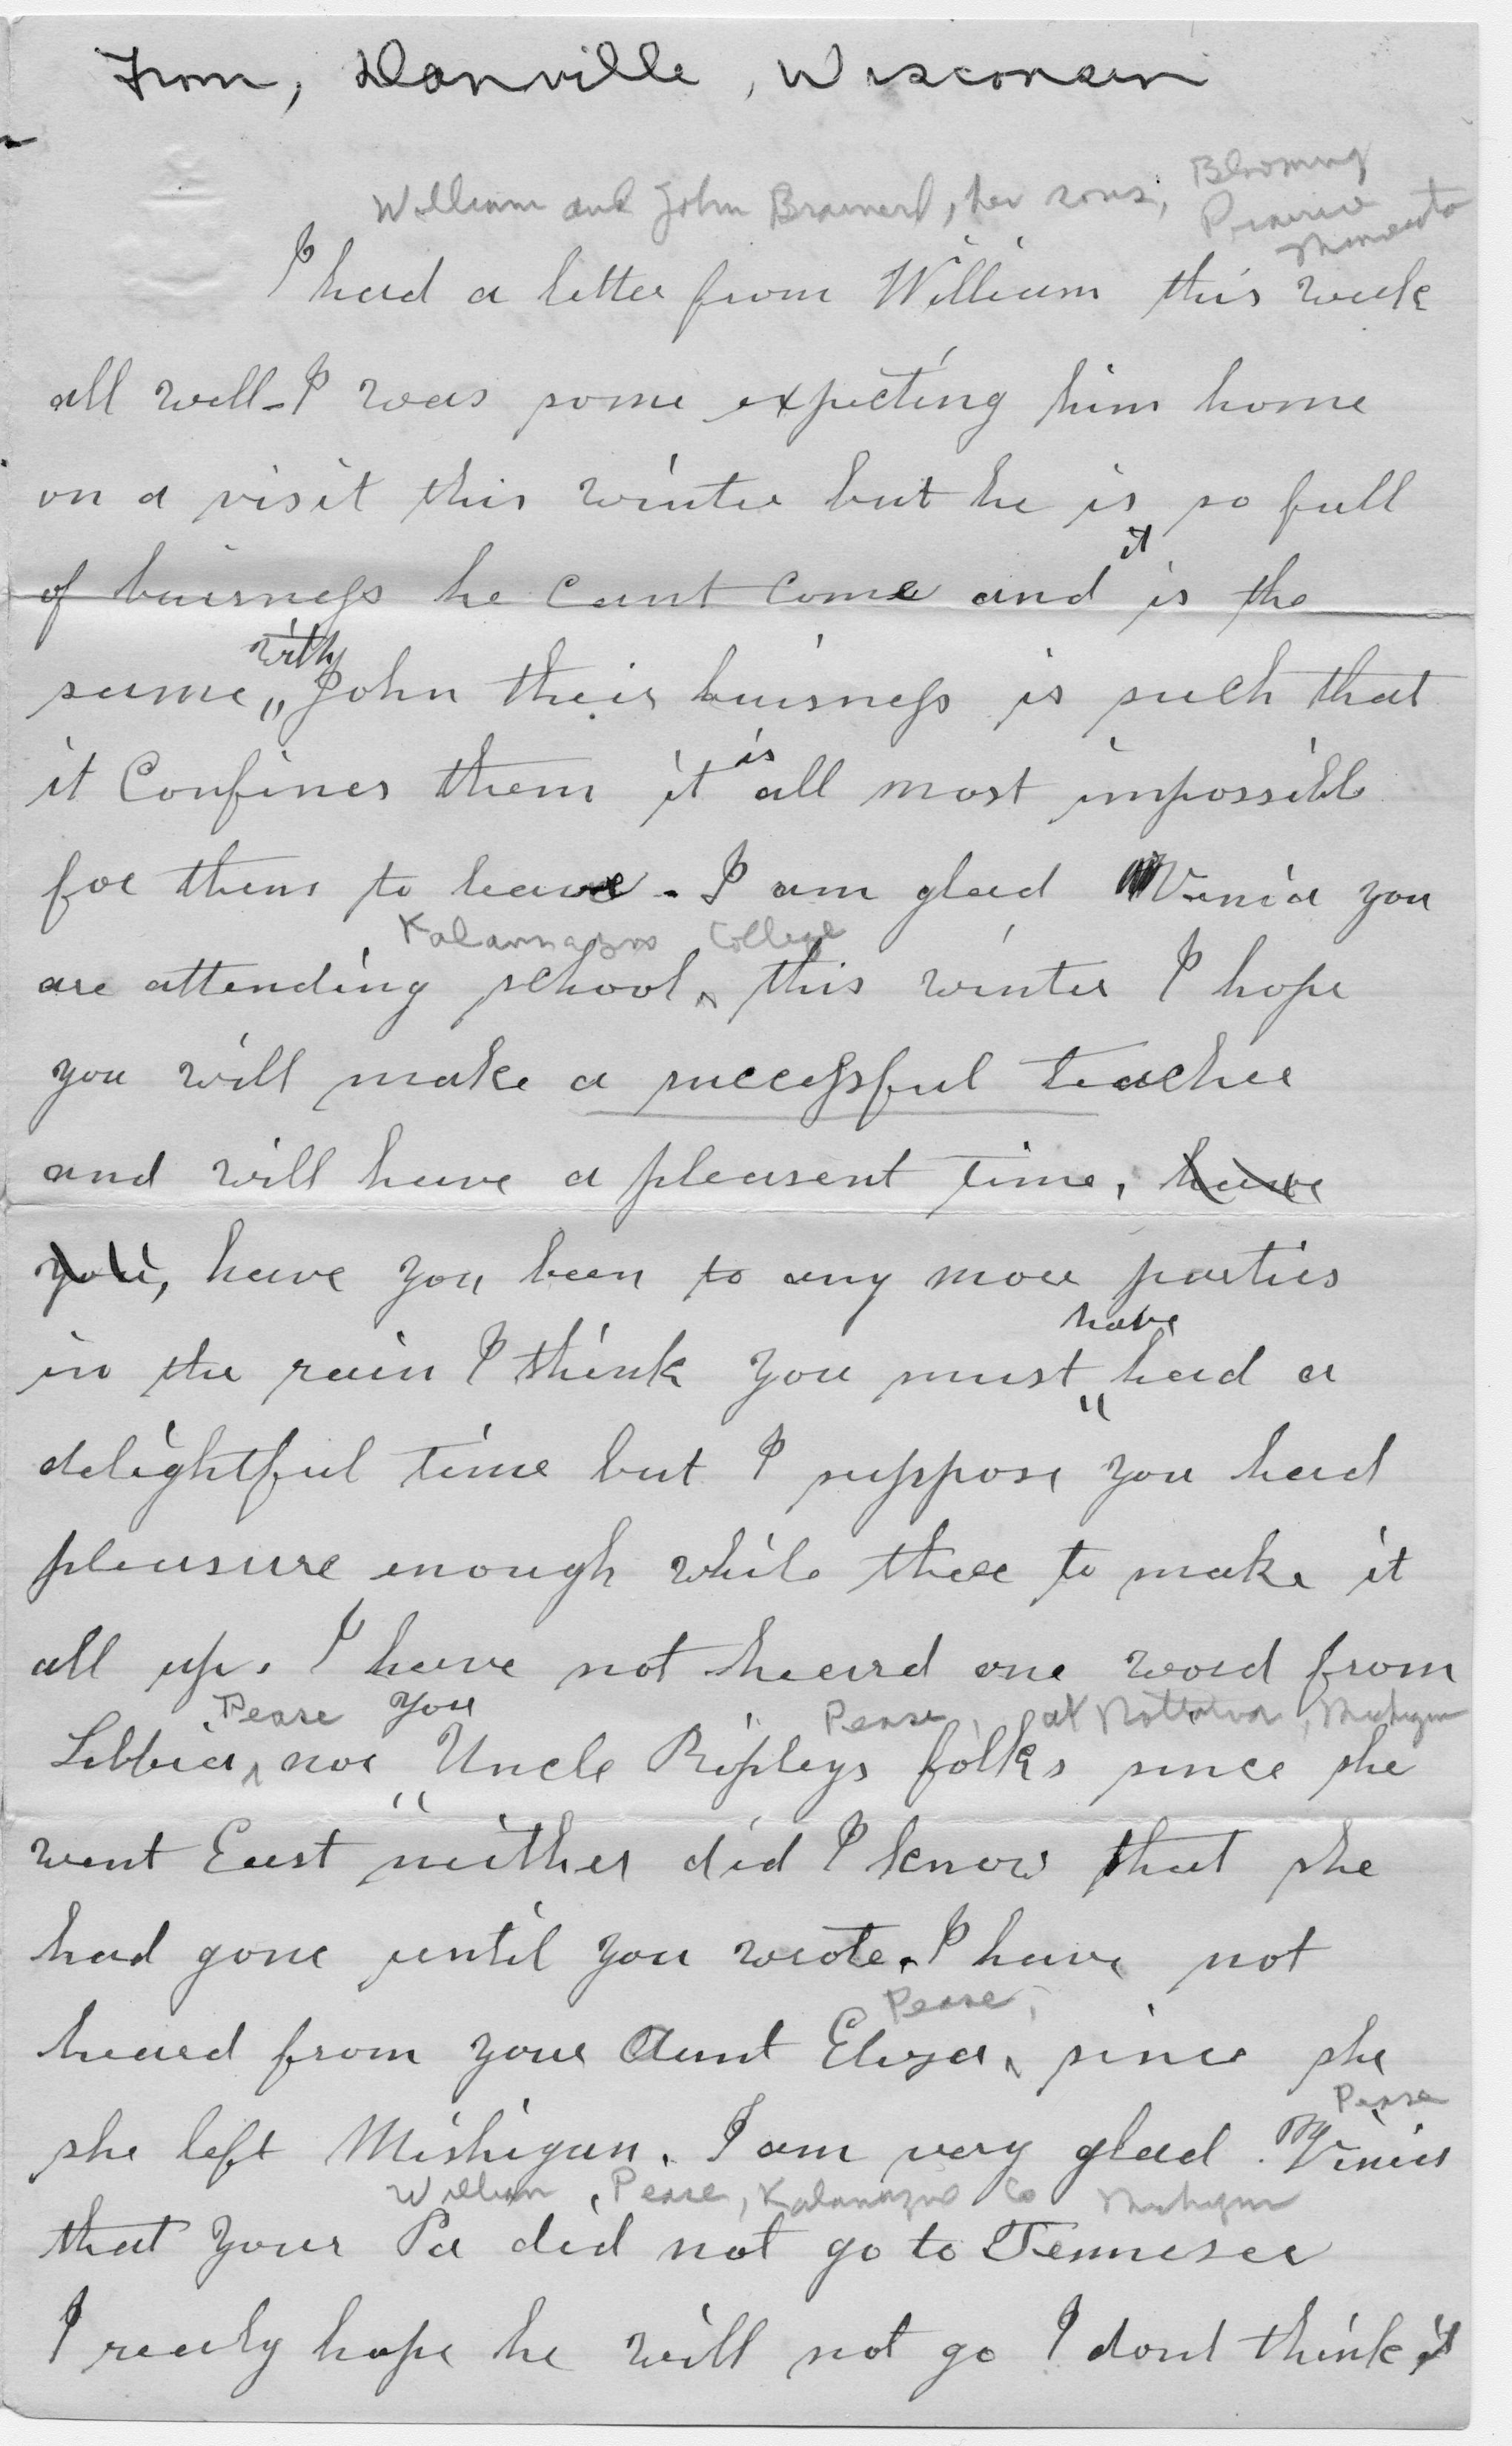 From, Danville, Wisconsin
William and John Brainerd, her sons, Blooming
Prairie
Minnesota
I had a letter from William this week
all well - I was some expecting him home
on a visit this winter but he is so full
it
of buisness he cant Come and is the
with
same,, John their buisness is such that
is
it Confines them it all most impossible
for them to leave - I am glad Vinia you
Kalamazoo College
are attending school ^ this winter I hope
you will make a successful teacher
and will have a pleasent time, have
you, have you been to any more parties
have
in the rain I think you must " had a
delightful time but I suppose you had
pleasure enough while there to make it
all up. I have not heard one word from
Pease you Pease, at Nottawa, Michigan
Libbia ^ nor " Uncle Ripleys folks since she
went East neither did I know that she
had gone until you wrote. I have not
Pease,
heard from your Aunt Eliza ^ since she
Pease
she left Mishigan. I am very glad Vinia
William Pease, Kalamazoo Co Michigan
that your Pa did not go to Tennesee
I realy hope he will not go I dont think it